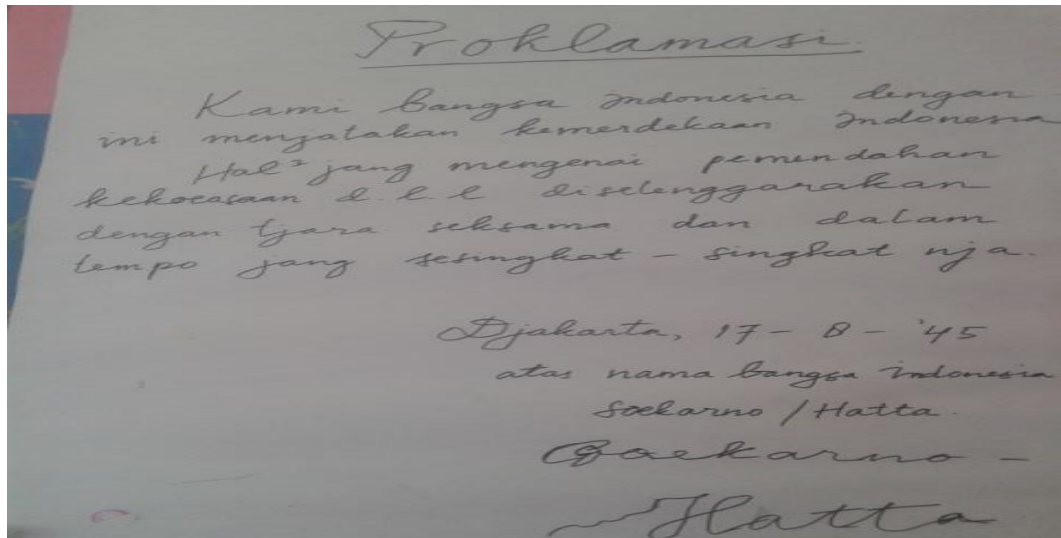 Proklamasi.
Kami bangsa indonesia dengan
ini menjatakan kemerdekaan Indonesia
Hal² jang mengenai pemindahan
kekoeasaan d.l.l diselenggarakan
dengan tjara seksama dan dalam
tempo jang sesingkat - singkat nja.
Djakarta, 17 - 8 - '45
atas nama bangsa indonesia
Soekarno / Hatta.
Soekarno -
Hatta